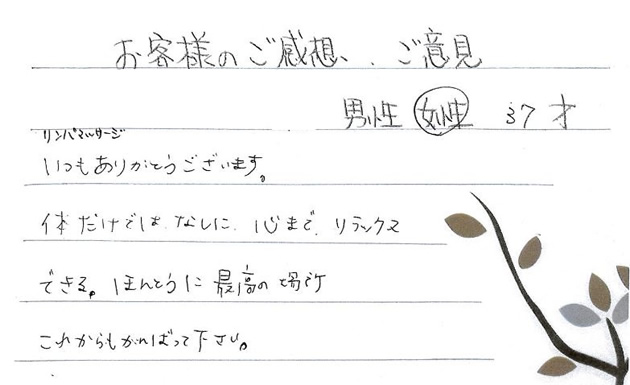 お客様のご感想、ご意見
男性 女性 37才
リンパマッサージ
いつもありがとうございます。
体だけでは、なしに、心まで、リラックス
できる。ほんとうに最高の場所
これからもがんばって下さい。